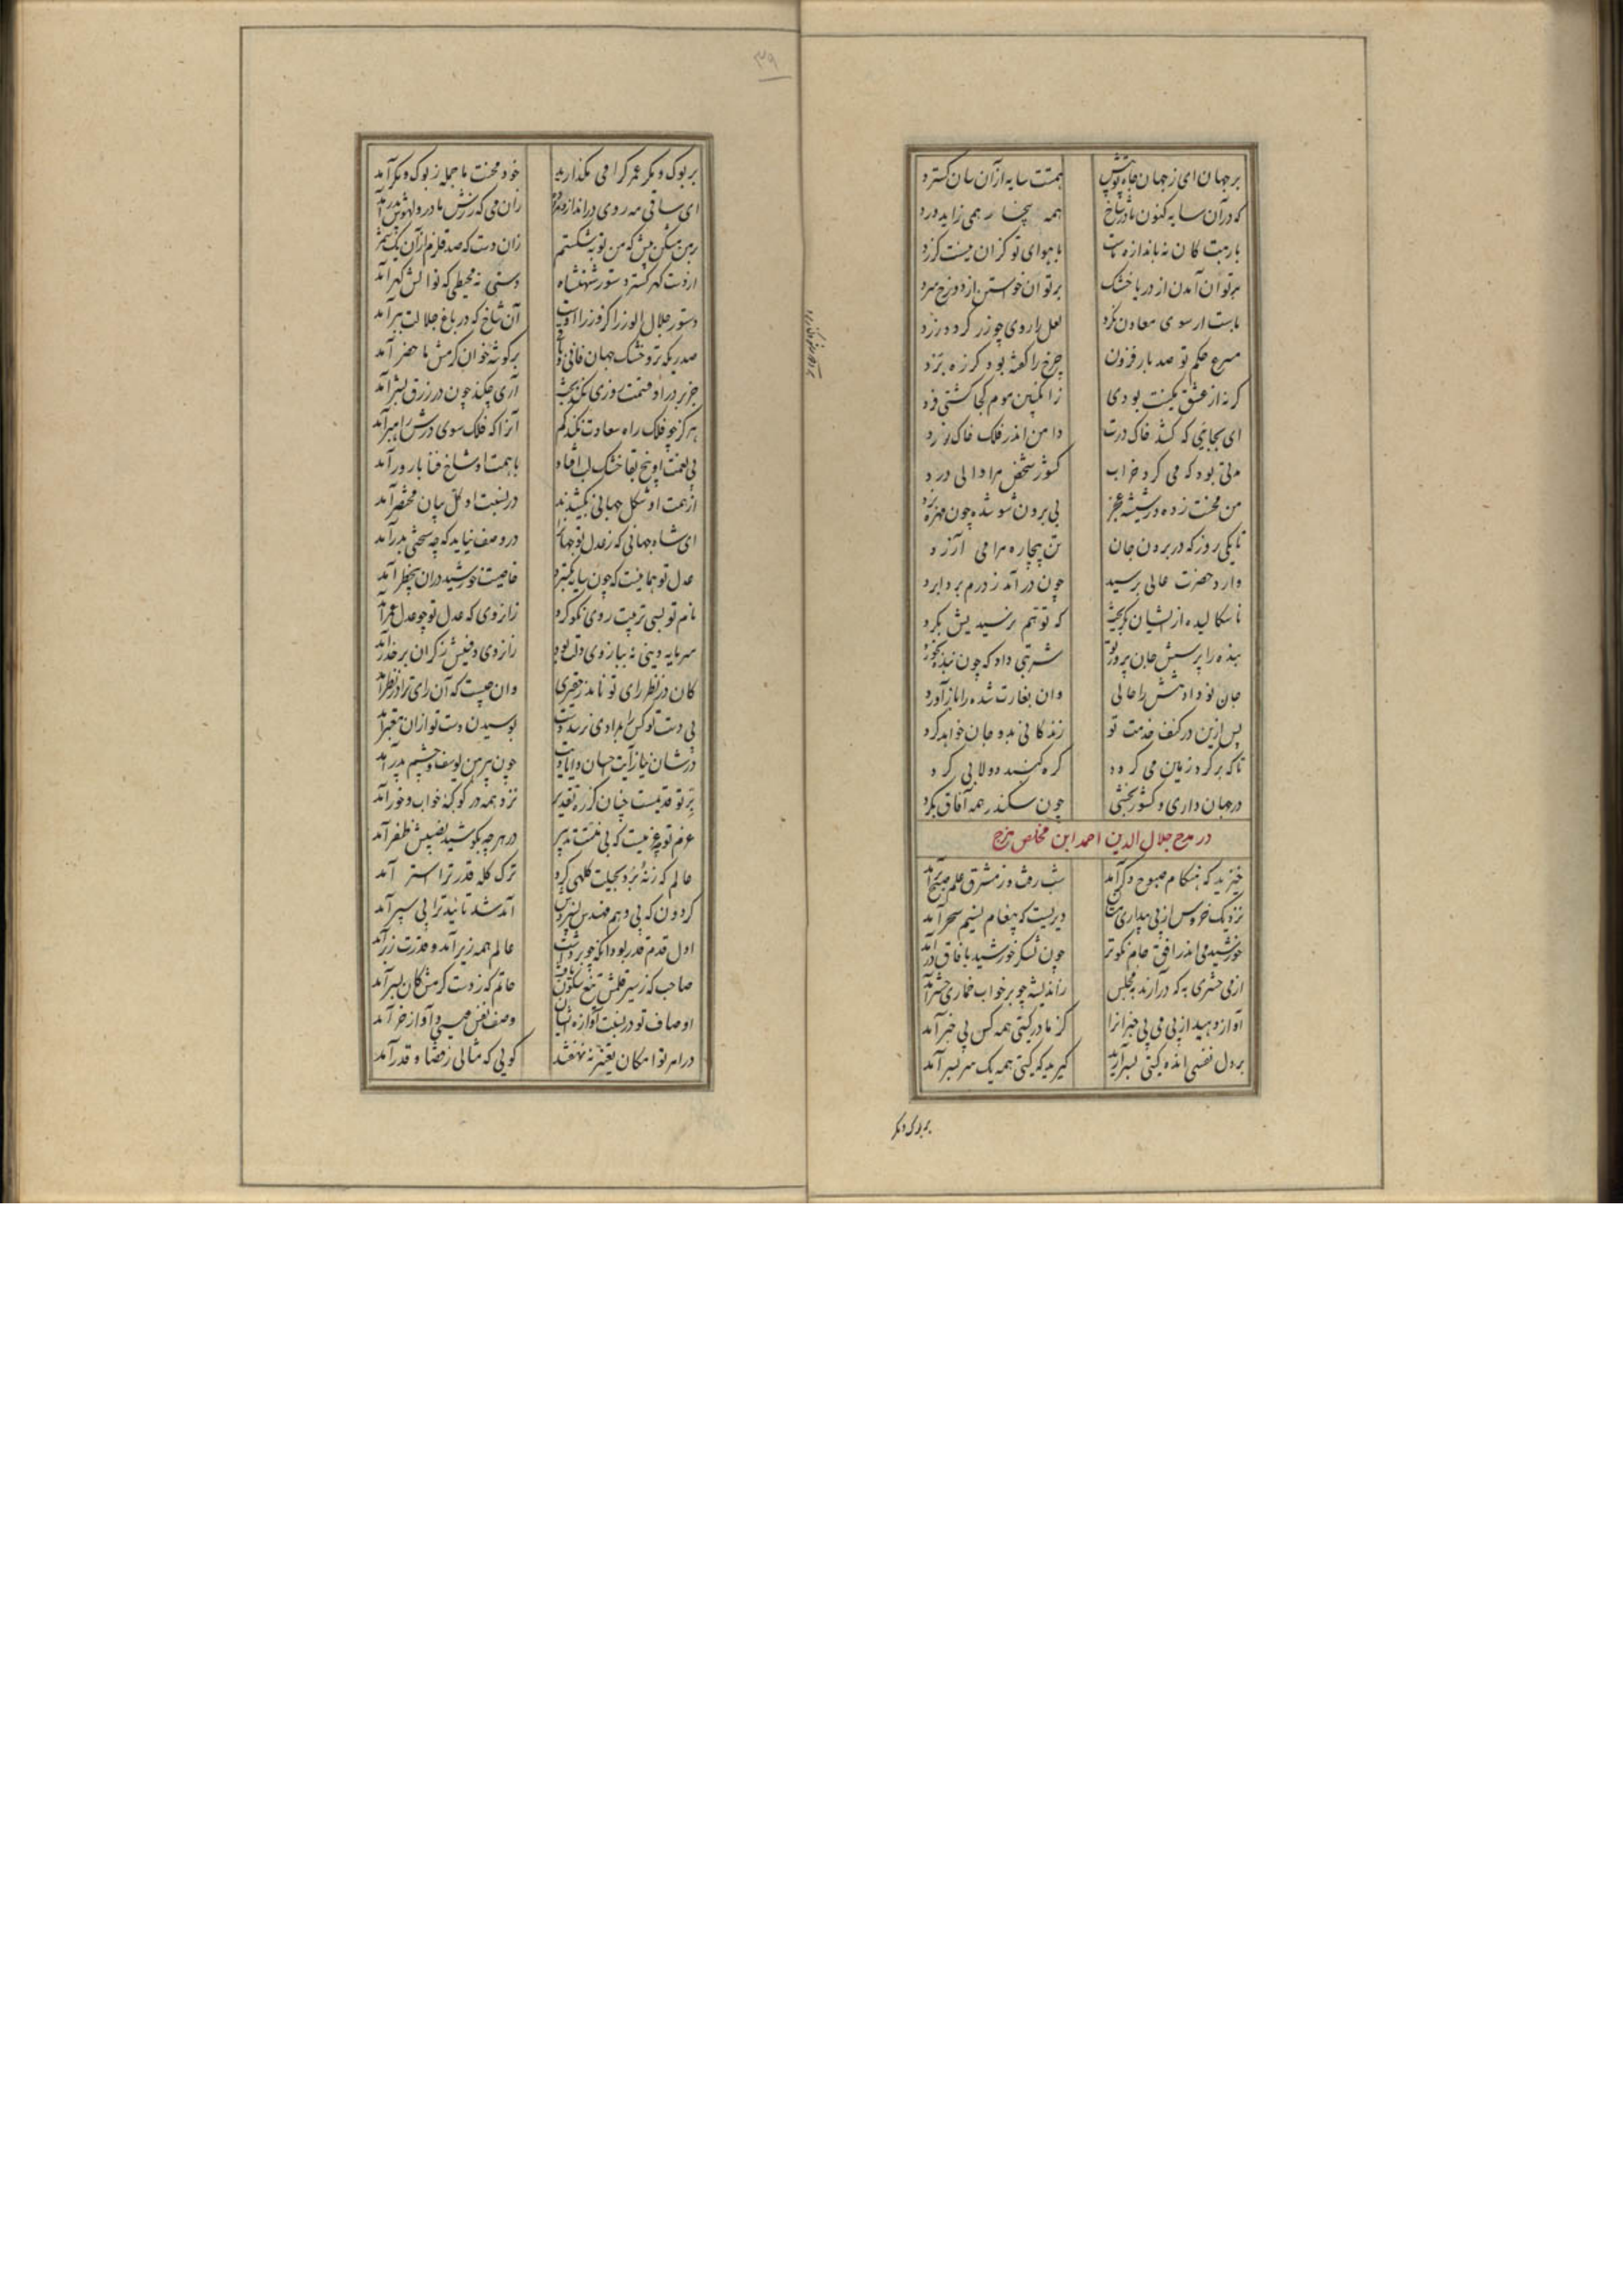 بر جهان ای ز جهان جاه تو بیش همتت سایه از آن سان گسترد
که در آن سایه کنون مادر شاخ همه بیخار همی زاید ورد
بارنیت کان نه باندازه تست با هوای تو کزان نیست گزرد
بر توان آمدن از دریا خشک بر توان خواستن از دوزخ سرد
لعل را روی چو زر گردد زرد
سرعت حکم تو صد بار فزون چرخ را گفته بود کز ره برد
گر نه از عشق نگینت بودی ز انگبین موم کجا گشتی فرد
ای بجایی که کشد خاک درت دامن اندر فلک خاک نورد
مدتی بود که می کرد خراب کشور شخص مرا والی درد
من محنت زده در شیشه عجز بی برون شو شده چون مهره نرد
تا یکی روز که در بردن جان تن بیچاره مرا می آزرد
وارد حضرت عالی برسید چون در آمد ز درم بردابرد
ناسگالیده از ایشان بگریخت که تو هم نرسیدیش بگرد
بنده را پرسش جان پرور تو شربتی داد که چون بنده بخورد
جان نو داد تنش را حالی وان بغارت شده را باز آورد
پس ازین در کنف خدمت تو زندگانی بدو جان خواهد کرد
تا که بر گرد زمین می گردد کره گنبد دولابی گرد
در جهان داری و کشور بخشی چون سکندر همه آفاق بگرد
در مدح جلال الدین احمد ابن مخلص هزج
خیزید که هنگام صبوح دگر آمد شب رفت و ز مشرق علم صبح بر آمد
نزدیک خروس از پی بیداری مستان دیریست که پیغام نسیم سحر آمد
خورشید می اندر افق جام نکوتر چون لشکر خورشید بآفاق در آمد
از می حشری به که درآرند بمجلس ز اندیشه چو بر خواب خماری حشر آمد
آواز دهید از پی می بی خبرانرا کز مادر گیتی همه کس بی خبر آمد
بر دل نفسی انده گیتی بسر آرید گیرید که گیتی همه یک سر بسر آمد
بر بوک و مگر
۳۹
بر بوک و مگر عمر گرامی مگذارید خود محنت ما جمله ز بوک و مگر آمد
ای ساقی مه روی در انداز و مرا ده زان می که رزش مادر و لهوش پدر آمد
زان دست که صد قلزم از آن یک شمر
از دست گهر گستر دستور شهنشاه دستی نه محیطی که نوالش گهر آمد
دستور جلال الوزرا کز وزرا اوست آن شاخ که در باغ جلالت ببر آمد
صدریکه تر و خشک جهان فانی و باقی بر گوشه خوان کرمش ما حضر آمد
جز بر در او قسمت روزی نکند بخت آری چکند چون در رزق بشر آمد
هرگز چو فلک راه سعادت نکند گم آنرا که فلک سوی درش راهبر آمد
بی نعمت او بیخ بقا خشک لب افتاد با همت او شاخ فنا بارور آمد
از همت او شکل جهانی بکشیدند در نسبت او کل بیان مختصر آمد
ای شاه جهانی که ز عدل تو جهان را در وصف نیاید که چه سختی بدر آمد
عدل تو هماییست که چون سایه بگسترد خاصیت خورشید در ان بیخطر آمد
نام تو بسی تربیت روی نکو کرد زان روی که عدل تو چو عدل عمر آمد
سرمایه
کان در نظر رای تو نامد ز حقیری وان چیست که آن رای ترا در نظر آمد
بی دست تو کس را بمرادی نرسد دست بوسیدن دست تو از آن معتبر آمد
در شان نیاز آیت احسان و ایادیت چون پیرهن یوسف و چشم پدر آمد
پر تو قدیمست چنان کز ره تقدیر نزد همه در کوکبه خواب و خور آمد
عزم تو چه عزمیست که بی منت تدبیر در هر چه بکوشید نصیبش ظفر آمد
ترک کله قدر ترا استر آمد
گردون که پی وهم مهندس نسپردش آمد شد تائید ترا پی سپر آمد
اول قدم قدر تو بود آنکه چو برداشت عالم همه زیر آمد و قدرت زبر آمد
حاتم که ز دست کرمش کان بسر آمد
اوصاف تو در نسبت آوازه ایشان وصف نفس عیسی و آواز خر آمد
در امر تو امکان تغیر ننهفتند گویی که مثالی ز قضا و قدر آمد